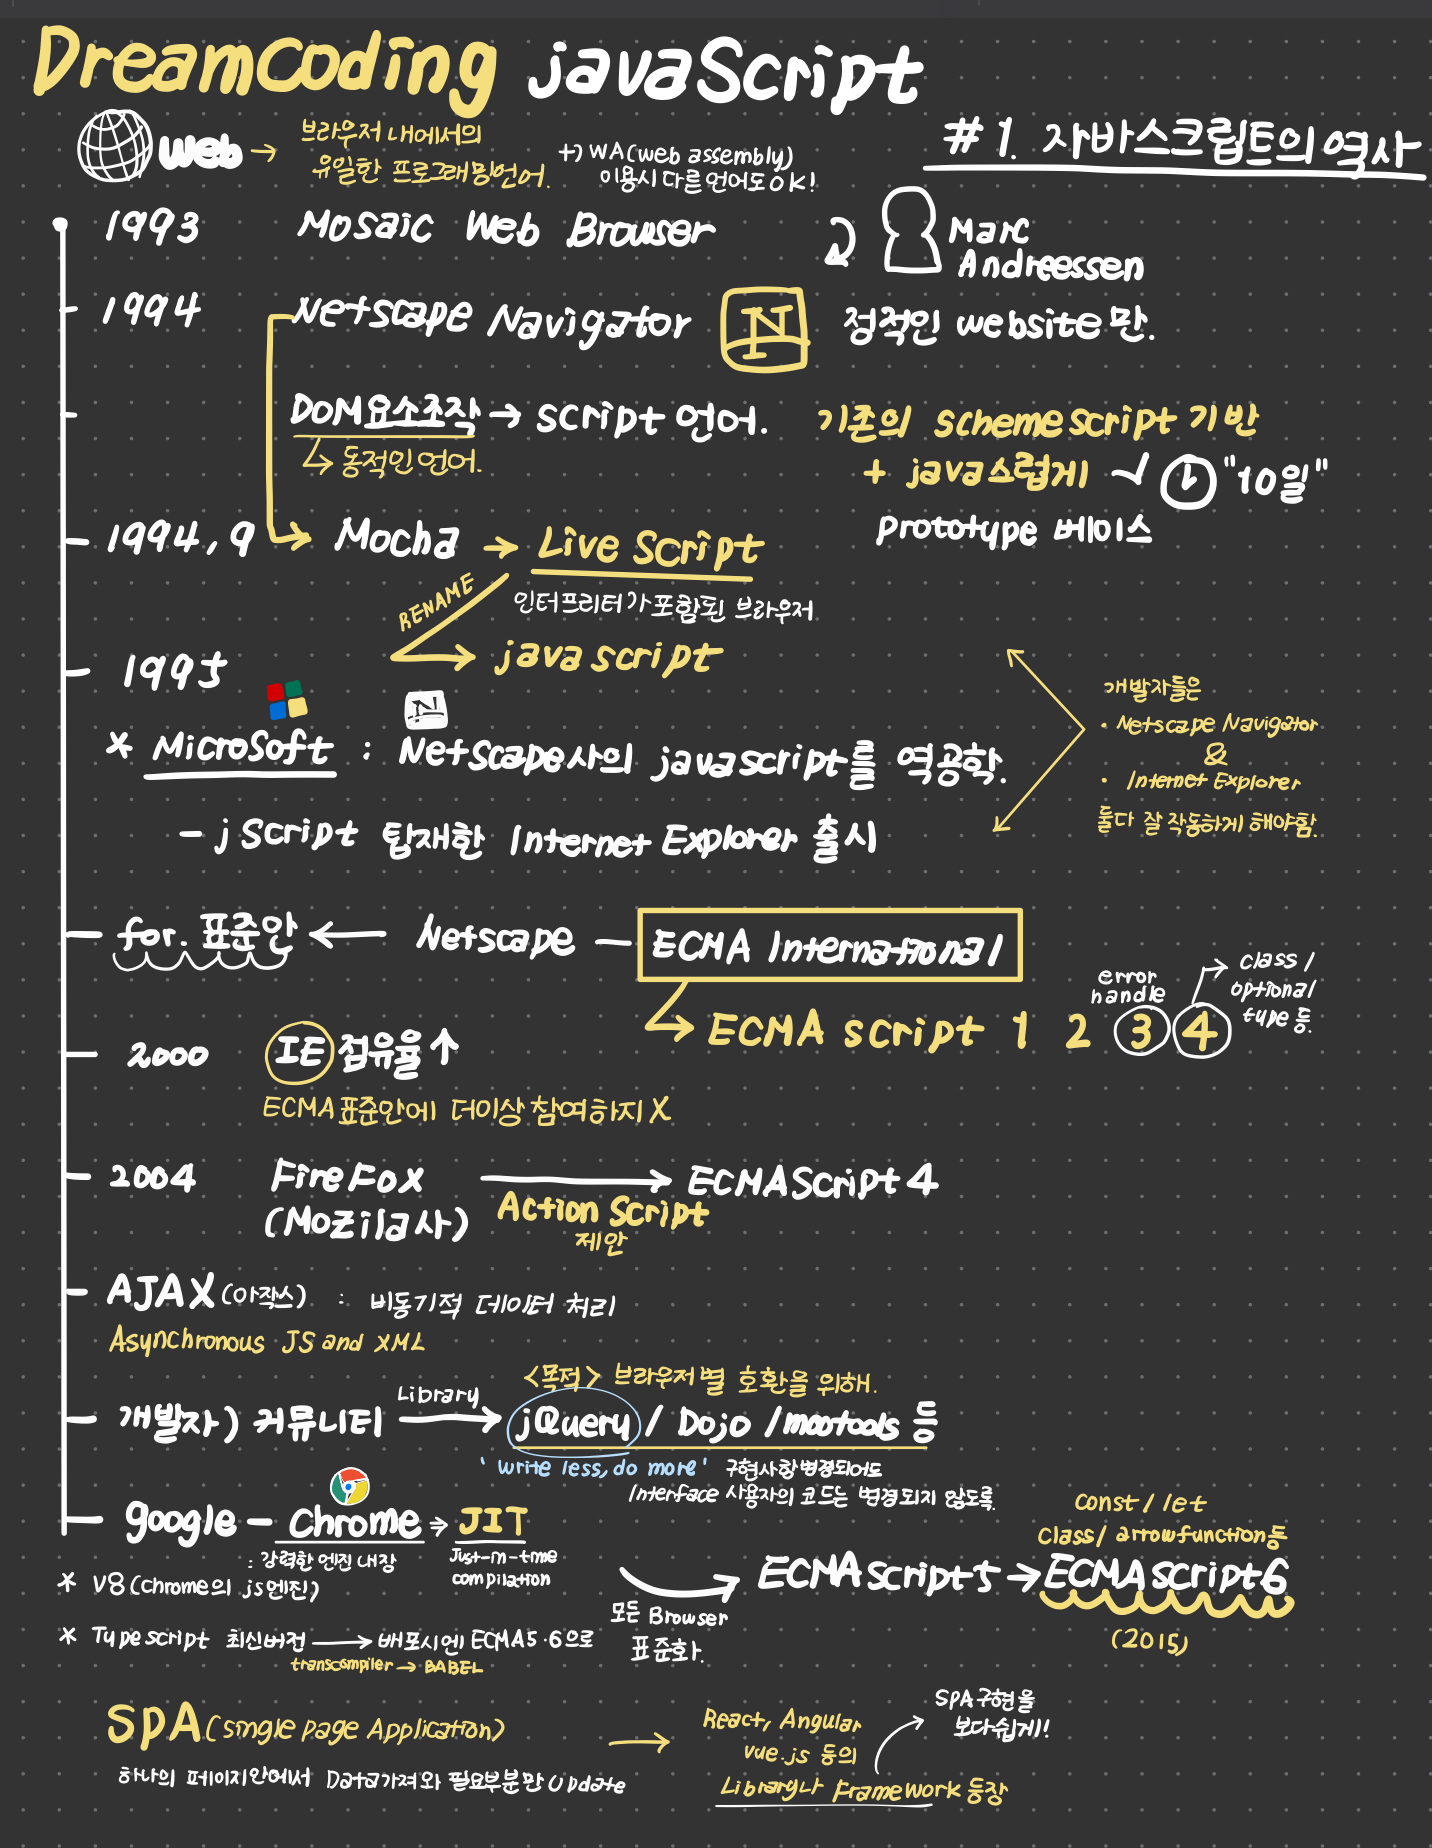 DreamCoding javaScript
#1. 자바스크립트의 역사
web → 브라우저 내에서의
유일한 프로그래밍언어.
+) WA(web assembly)
이용시 다른 언어도 OK!
1993 Mosaic Web Browser
Marc
Andreessen
1994 Netscape Navigator N 정적인 website 만.
DOM요소조작 → script 언어.
↳ 동적인 언어.
기존의 scheme script 기반
+ java스럽게
"10일"
prototype 베이스
1994, 9 → Mocha → Live Script
인터프리터가 포함된 브라우저
RENAME
→ java script
1995
N
* Microsoft : Netscape사의 javascript를 역공학.
- jScript 탑재한 Internet Explorer 출시
개발자들은
· Netscape Navigator
&
· Internet Explorer
둘다 잘 작동하게 해야함.
for. 표준안 ← Netscape - ECMA International
→ ECMA script 1 2 3 4
error
handle
class /
optional
type 등.
2000 IE 점유율 ↑
ECMA표준안에 더이상 참여하지 X
2004 FireFox → ECMAScript 4
(Mozilla사)
Action Script
제안
AJAX (아작스) : 비동기적 데이터 처리
Asynchronous JS and XML
<목적> 브라우저 별 호환을 위해.
개발자) 커뮤니티 Library → jQuery / Dojo / mootools 등
'write less, do more' 구현사항 변경되어도
Interface 사용자의 코드는 변경되지 않도록.
google - Chrome → JIT
: 강력한 엔진 내장
Just-in-time
compilation
* V8 (Chrome의 js엔진)
모든 Browser
표준화.
ECMAScript5 → ECMAScript6
const / let
class / arrow function 등
(2015)
* Typescript 최신버전 → 배포시엔 ECMA5·6으로
transcompiler → BABEL
SPA (single page Application)
하나의 페이지안에서 Data가져와 필요부분만 Update
→ React, Angular
vue.js 등의
Library나 Framework 등장
SPA구현을
보다쉽게!